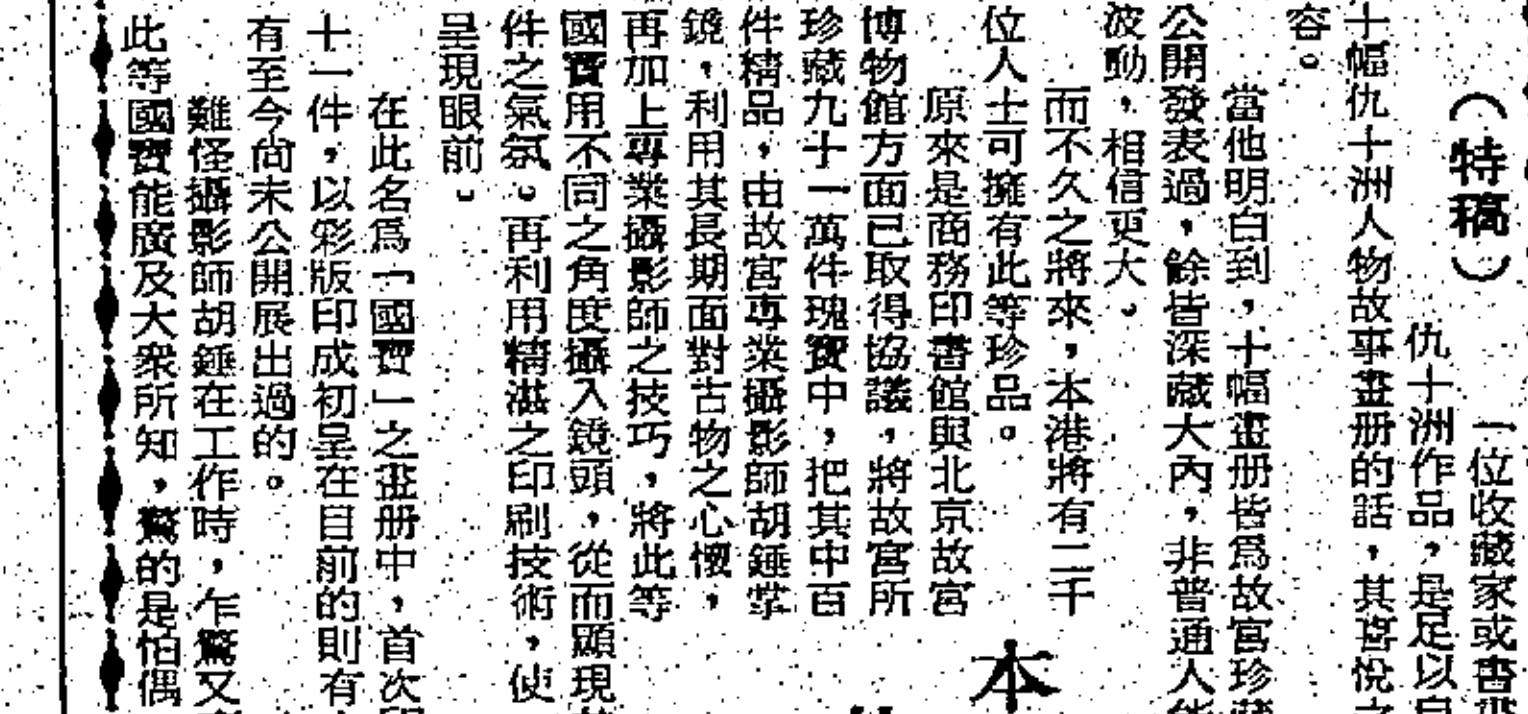 （特稿）
一位收藏家或書畫
仇十洲作品，是足以自
十幅仇十洲人物故事畫册的話，其喜悅之
容。
當他明白到，十幅畫册皆爲故宮珍藏
公開發表過，餘皆深藏大內，非普通人能
波動，相信更大。
而不久之將來，本港將有二千
位人士可擁有此等珍品。
本
原來是商務印書館與北京故宮
博物館方面已取得協議，將故宮所
珍藏九十一萬件瑰寶中，把其中百
件精品，由故宮專業攝影師胡錘掌
鏡，利用其長期面對古物之心懷，
再加上專業攝影師之技巧，將此等
國寶用不同之角度攝入鏡頭，從而顯現
件之氣氛。再利用精湛之印刷技術，使
呈現眼前。
在此名爲「國寶」之畫册中，首次
十一件，以彩版印成初呈在目前的則有
有至今尚未公開展出過的。
難怪攝影師胡錘在工作時，乍驚又
此等國寶能廣及大衆所知，驚的是怕偶